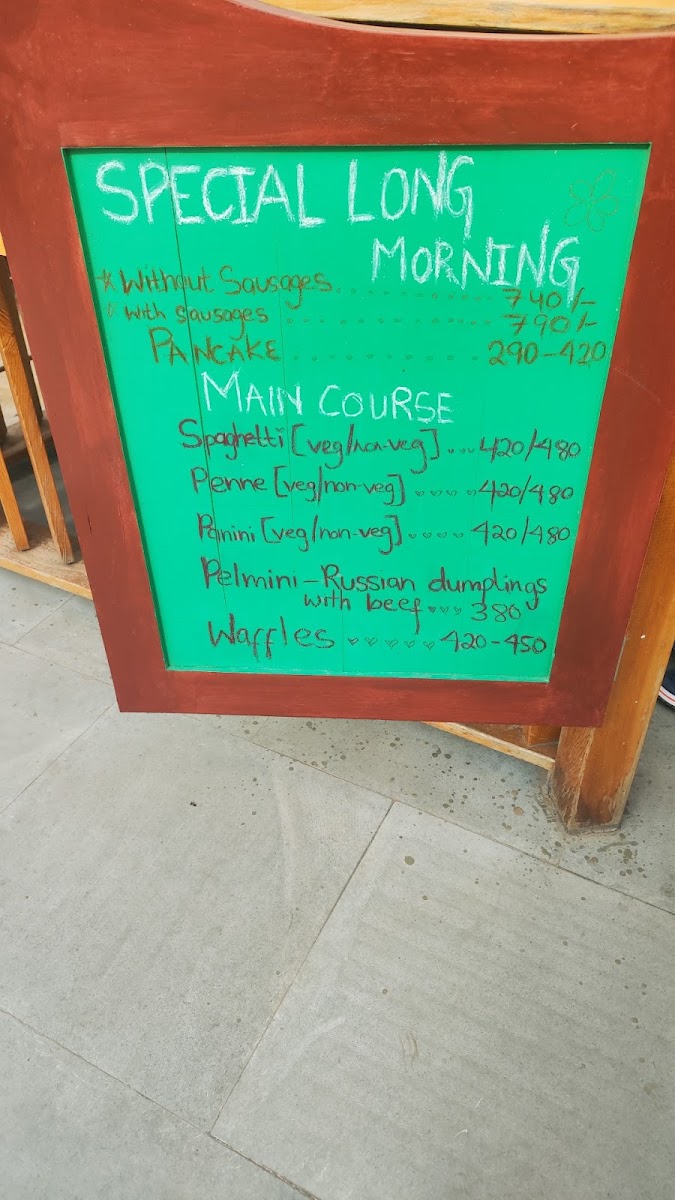 SPECIAL LONG
MORNING
* Without Sausages ........... 740/-
* With Sausages ........... 790/-
PANCAKE ........... 290-420
MAIN COURSE
Spaghetti [veg/non-veg] ... 420/480
Penne [veg/non-veg] .... 420/480
Panini [veg/non-veg] .... 420/480
Pelmini - Russian dumplings
with beef ... 380
Waffles ..... 420-450